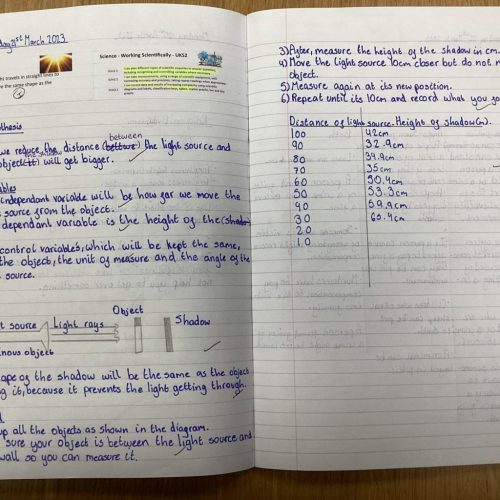 day 21st March 2023
Science - Working Scientifically - UKS2
ht travels in straight lines to
e the same shape as the
thesis
between
we reduce the distance the light source and
the shadow
object will get bigger.
ables
independant variable will be how far we move the
source from the object.
dependant variable is the height of the
control variables, which will be kept the same,
the object, the unit of measure and the angle of the
source.
Object
t source Light rays Shadow
nous object
ape of the shadow will be the same as the object
ng it, because it prevents the light getting through.
up all the objects as shown in the diagram.
sure your object is between the light source and
wall so you can measure it.
3) After, measure the height of the shadow in cm.
4) Move the light source 10cm closer but do not m
object.
5) Measure again at its new position.
6) Repeat until its 10cm and record what you
Distance of light source. Height of shadow(m).
100 42cm
90 32.9cm
80 39.9cm
70 35cm
60 50.4cm
50 53.3cm
40 59.9cm
30 60.4cm
20
10